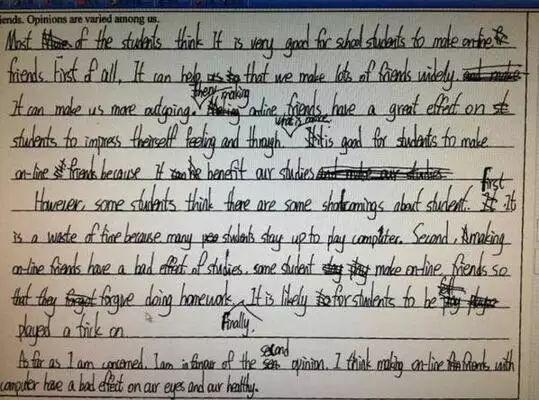 iends. Opinions are varied among us.
Most of the students think It is very good for school students to make on-line
friends. First of all, It can help us that we make lots of friends widely.
It can make us more outgoing. then, making on-line friends have a great effect on
students to impress theirself feeling and through. what is more, It is good for students to make
on-line friends because it benefit our studies
However, some students think there are some shortcomings about student. First It
is a waste of time because many students stay up to play computer. Second, making
on-line friends have a bad effect of studies, some student make on-line friends so
that they forgive doing homework. Finally, It is likely for students to be
played a trick on.
As far as I am concerned, I am in favour of the second opinion. I think making on-line friends with
computer have a bad effect on our eyes and our healthy.